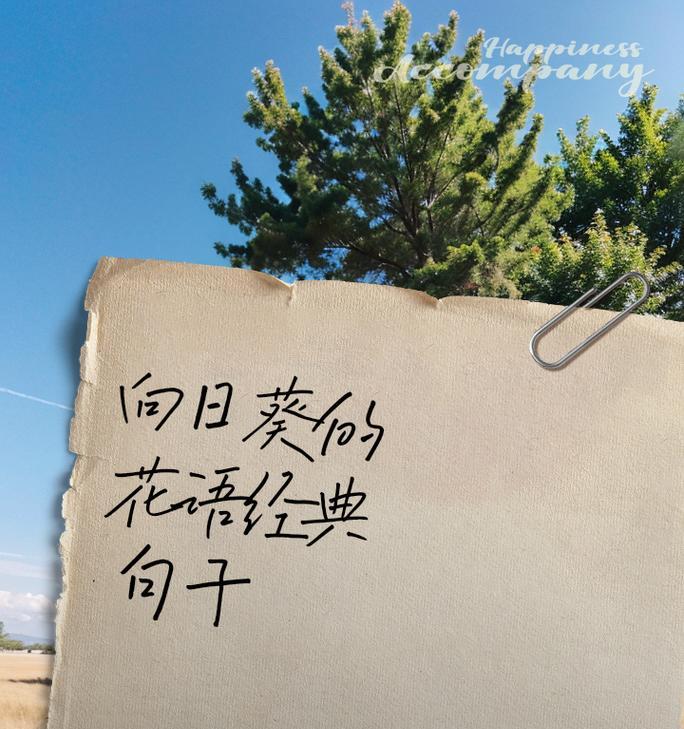 Happiness
Accompany
向日葵的
花语经典
句子